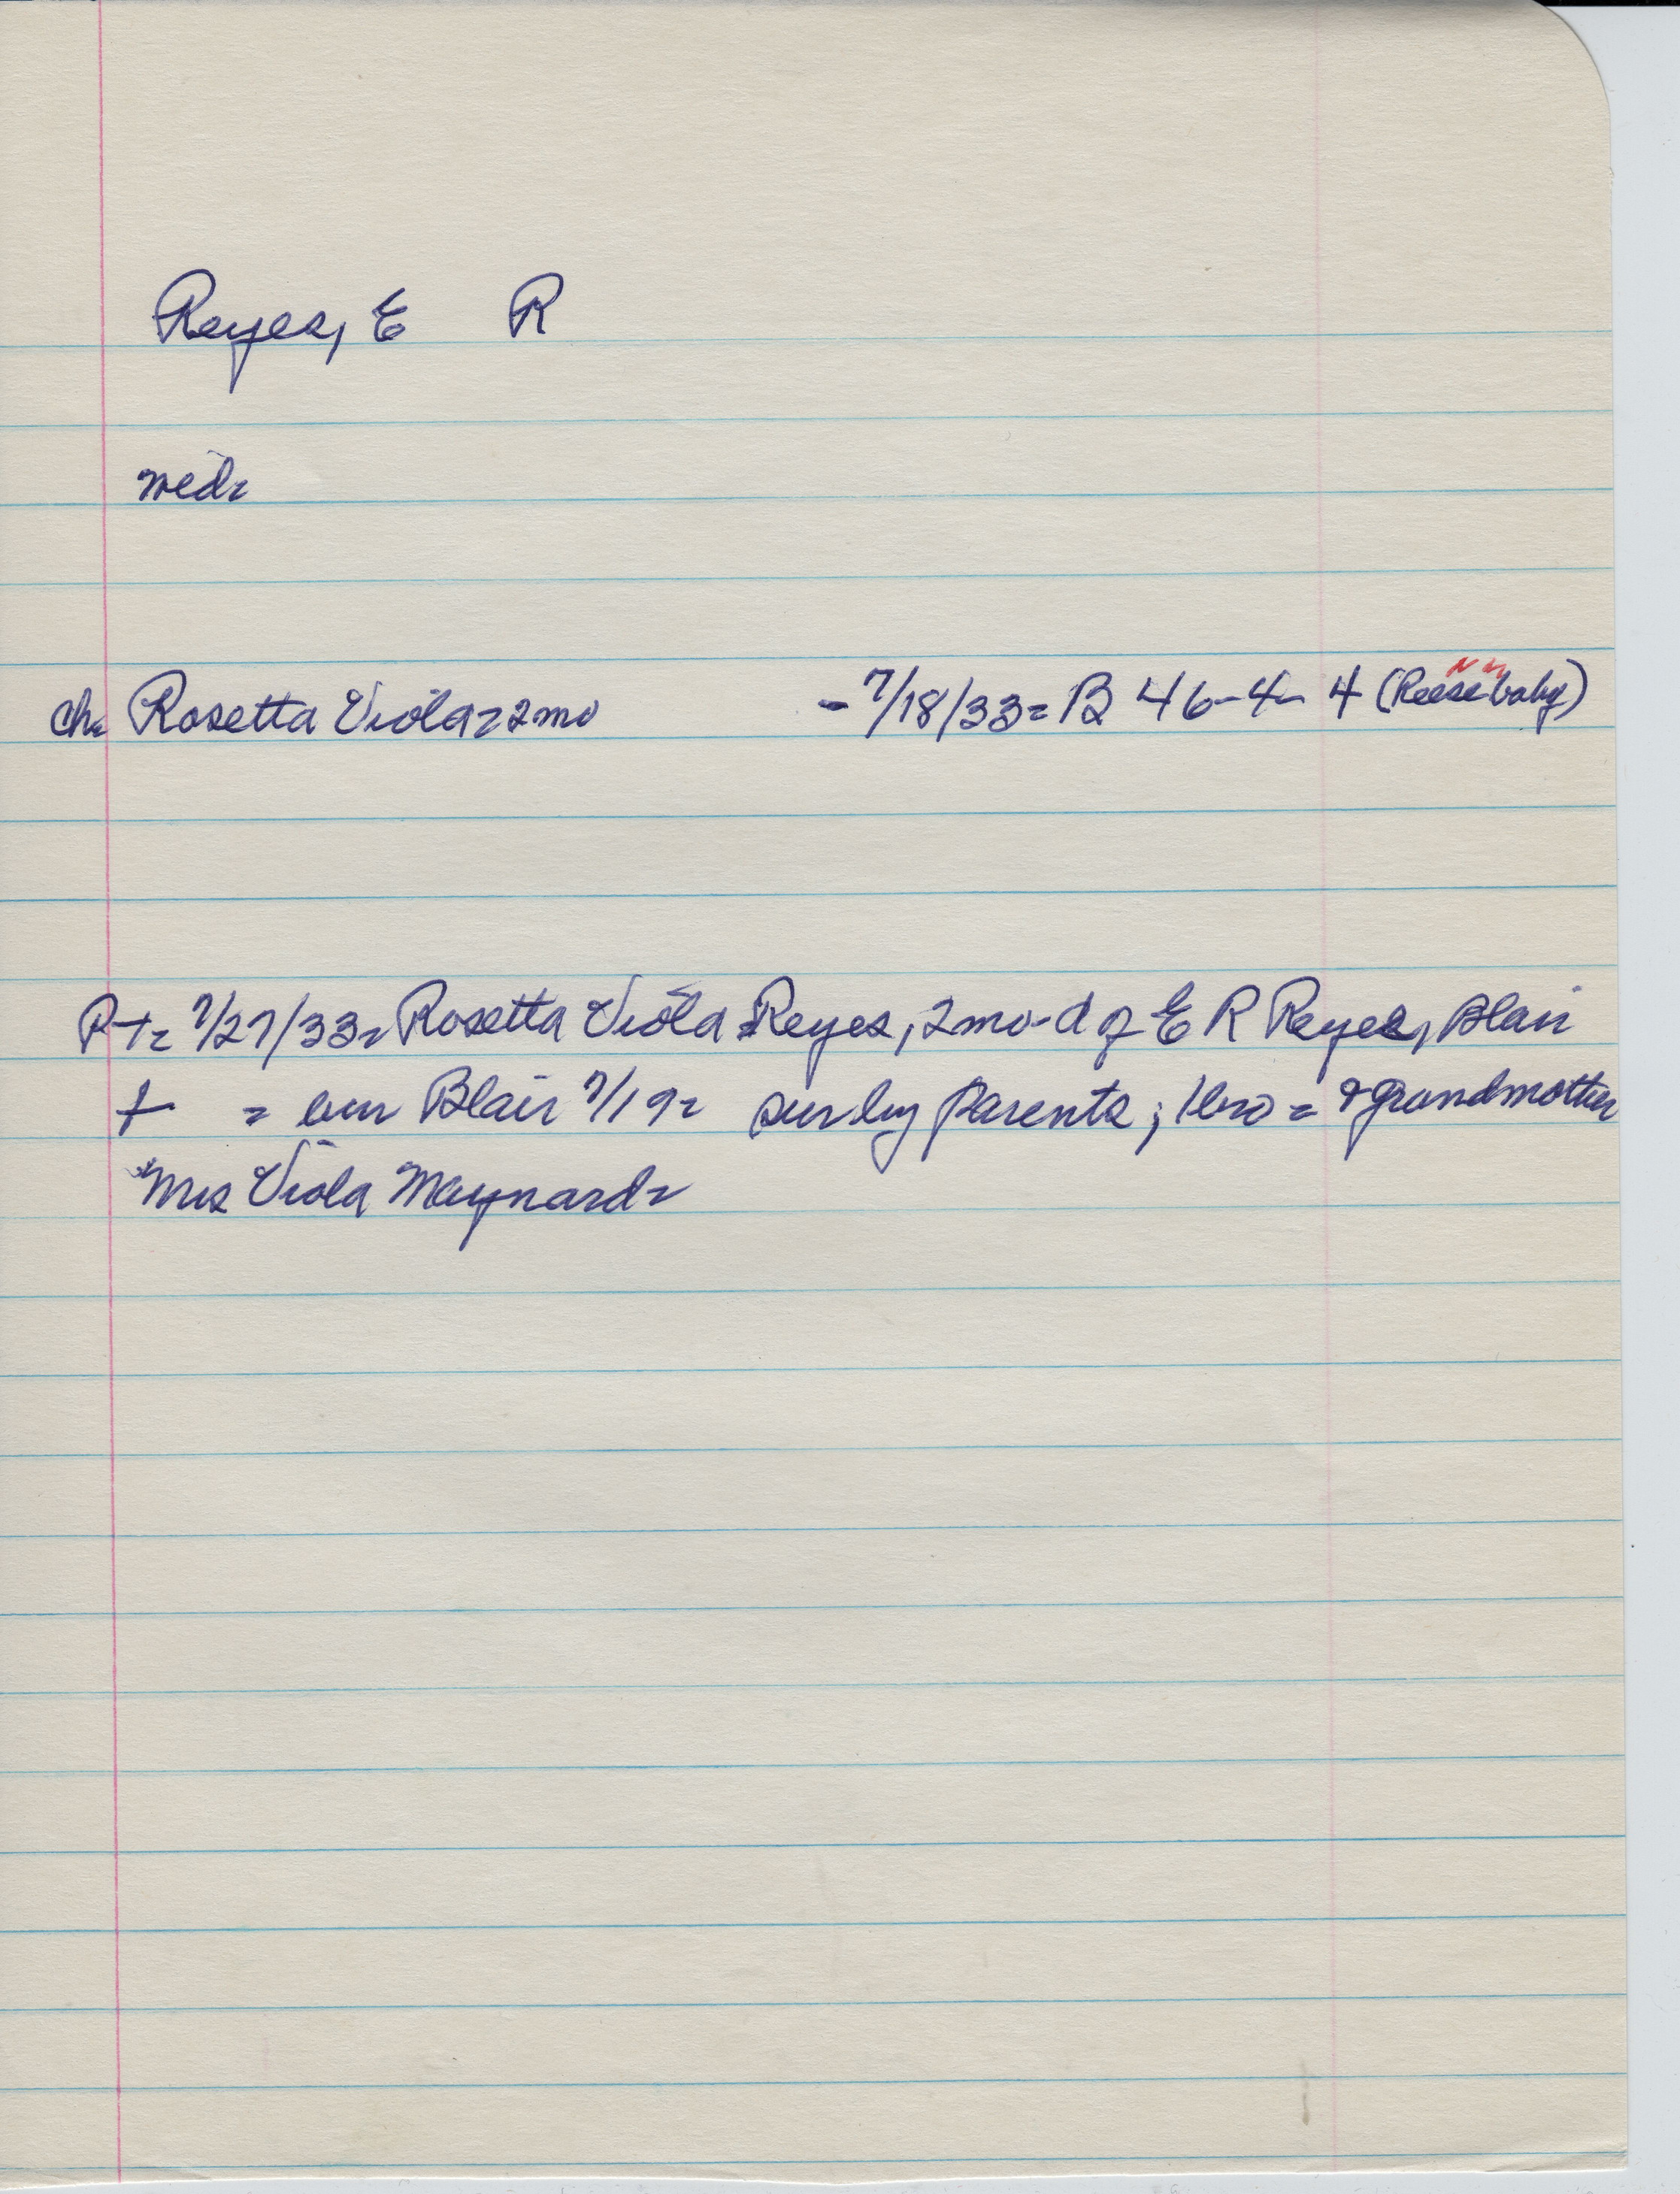 Reyes, E R
wed=
ch= Rosetta Viola=2mo -7/18/33=B 46-4- 4 (Reese baby)
Pt= 7/27/33= Rosetta Viola Reyes, 2mo-d of E R Reyes, Blair
+ = bur Blair 7/19= sur by parents; 1bro= & grandmother
Mrs Viola Maynard=